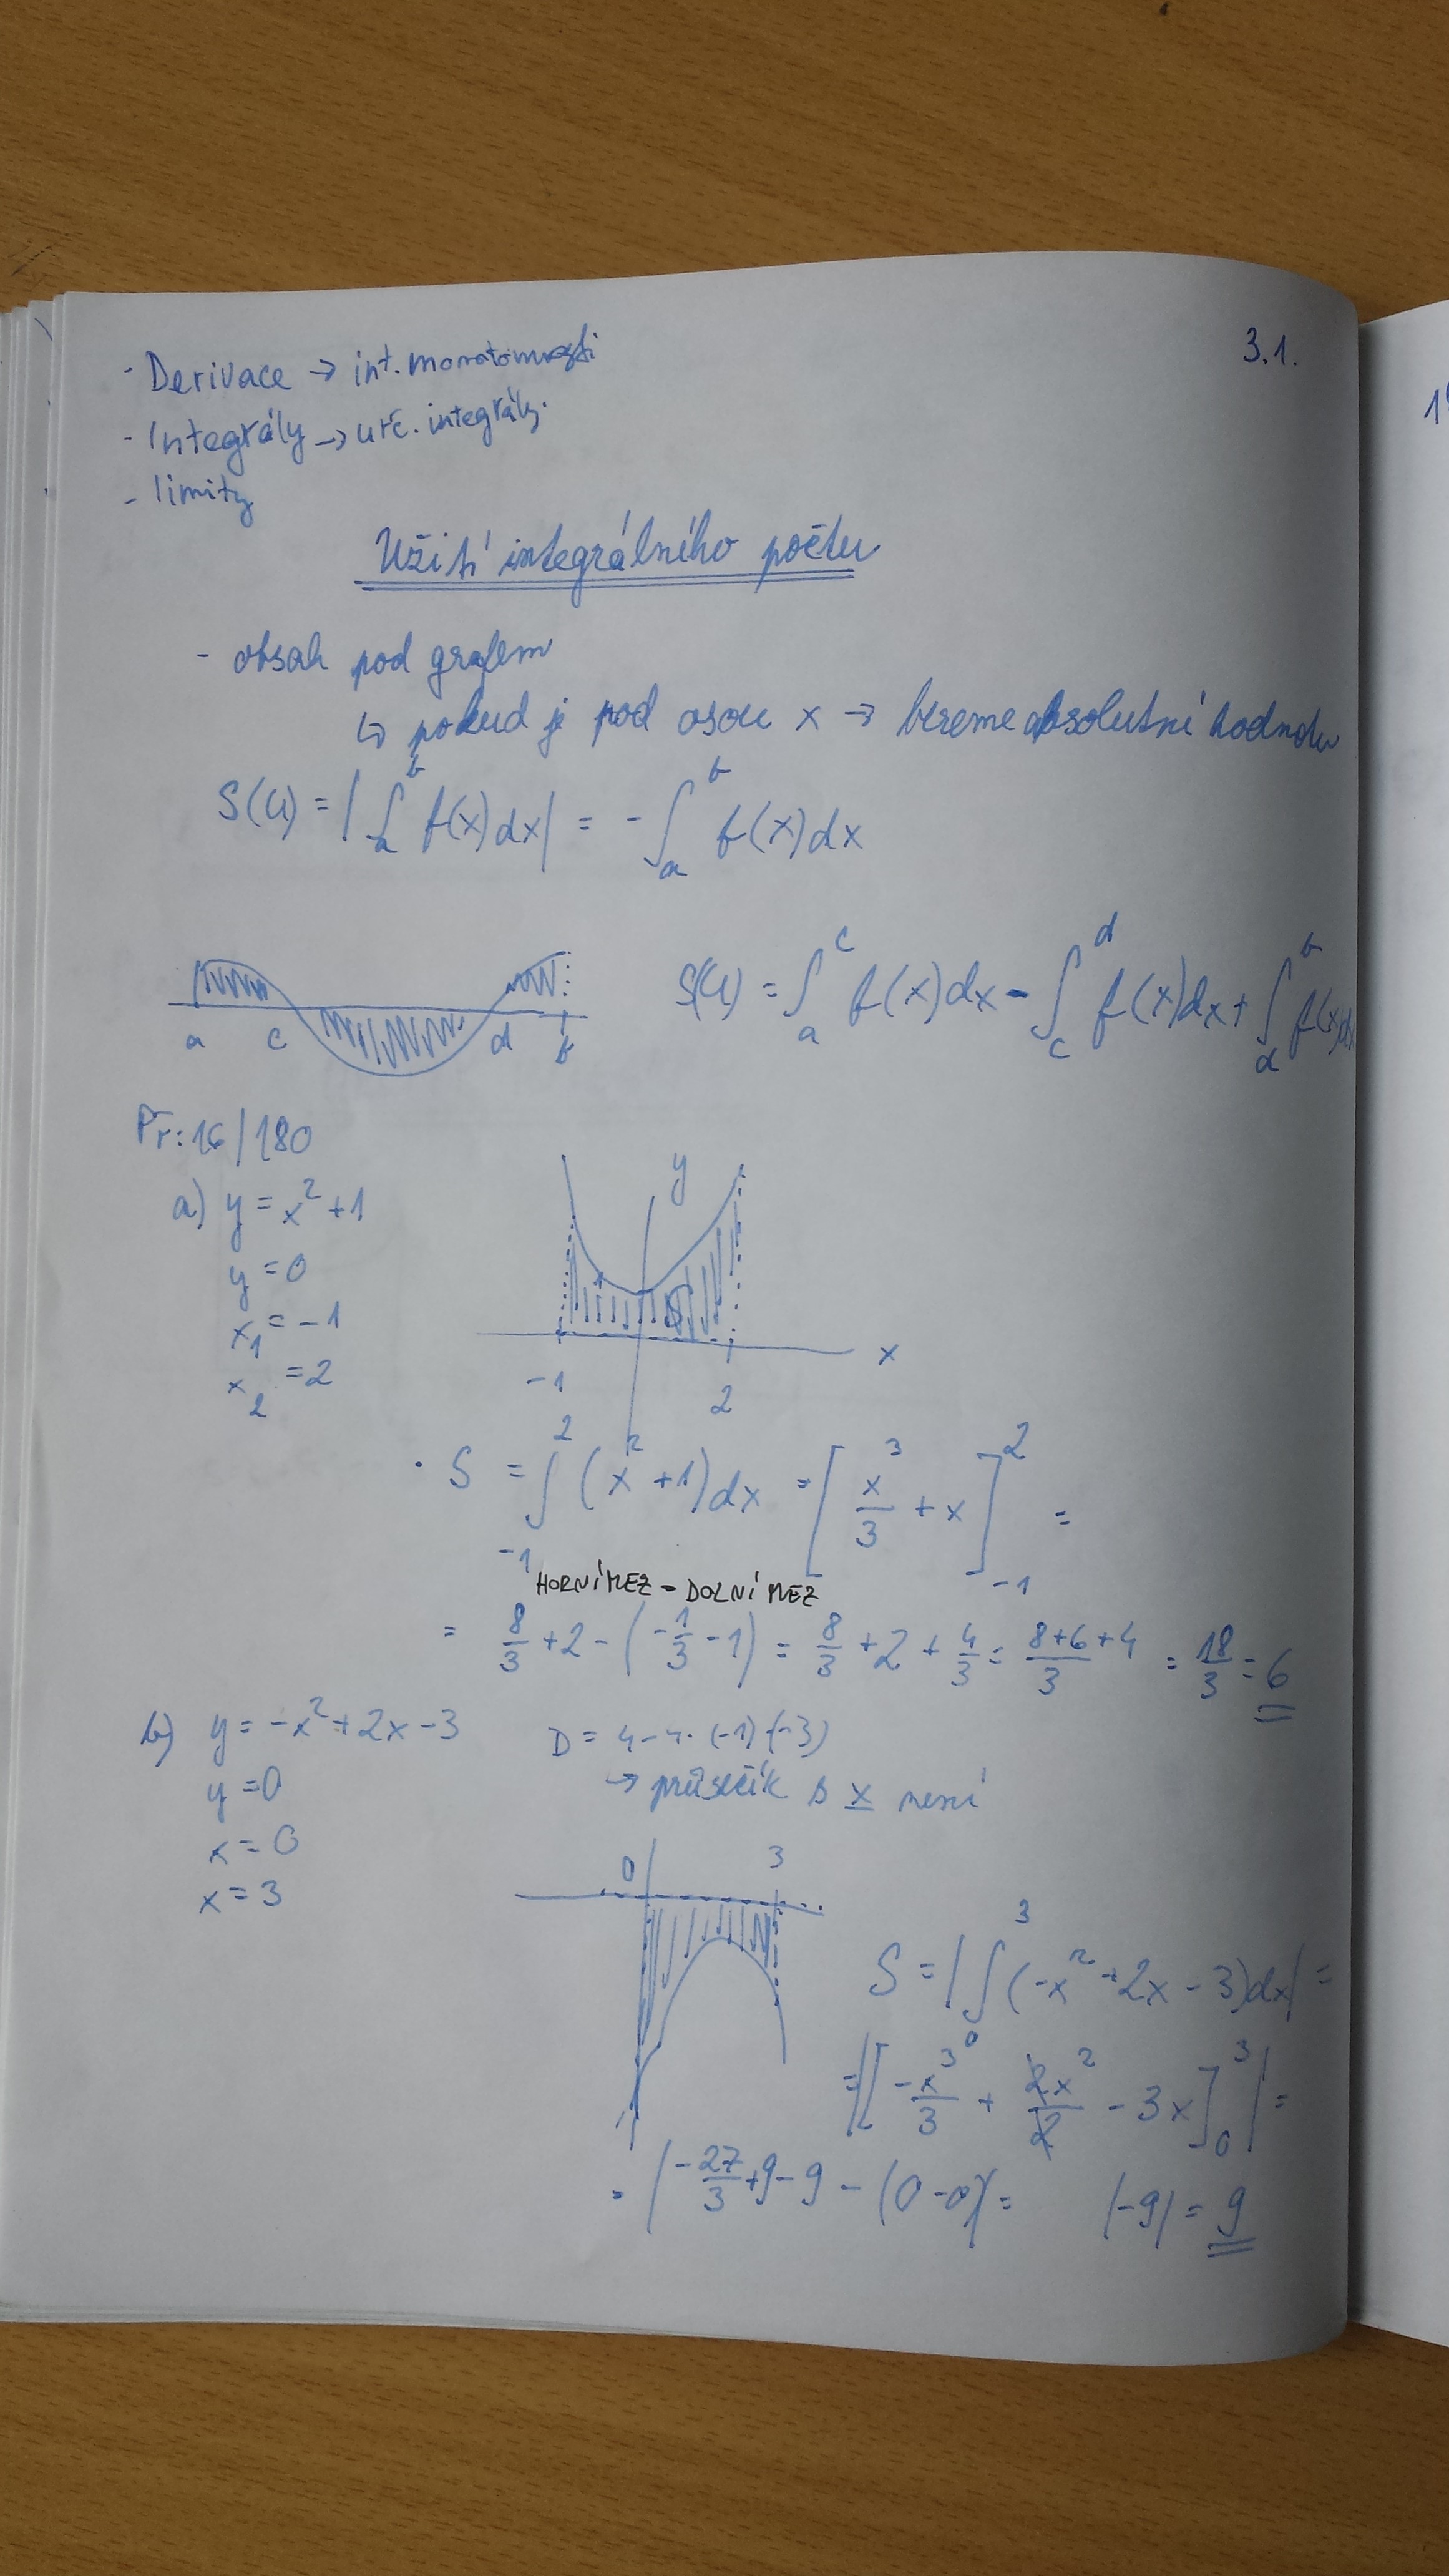 3.1.
- Derivace → int. monotomosti
- Integrály → urč. integrály.
- limity
Užití integrálního počtu
- obsah pod grafem
↳ pokud je pod osou x → bereme absolutní hodnotu
S(U) = |∫_a^b f(x)dx| = -∫_a^b f(x)dx
a c d b
S(U) = ∫_a^c f(x)dx - ∫_c^d f(x)dx + ∫_d^b f(x)dx
Př: 16/180
a) y = x² + 1
y = 0
x₁ = -1
x₂ = 2
y
x
-1 2
· S = ∫_{-1}^2 (x² + 1)dx = [x³/3 + x]_{-1}^2 =
HORNÍ MEZ - DOLNÍ MEZ
= 8/3 + 2 - (-1/3 - 1) = 8/3 + 2 + 4/3 = (8+6+4)/3 = 18/3 = 6
b) y = -x² + 2x - 3 D = 4 - 4 · (-1) · (-3)
y = 0 → průsečík s x není
x = 0
x = 3
0 3
S = |∫_0^3 (-x² + 2x - 3)dx| =
= |[-x³/3 + 2x²/2 - 3x]_0^3| =
= |-27/3 + 9 - 9 - (0 - 0)| = |-9| = 9